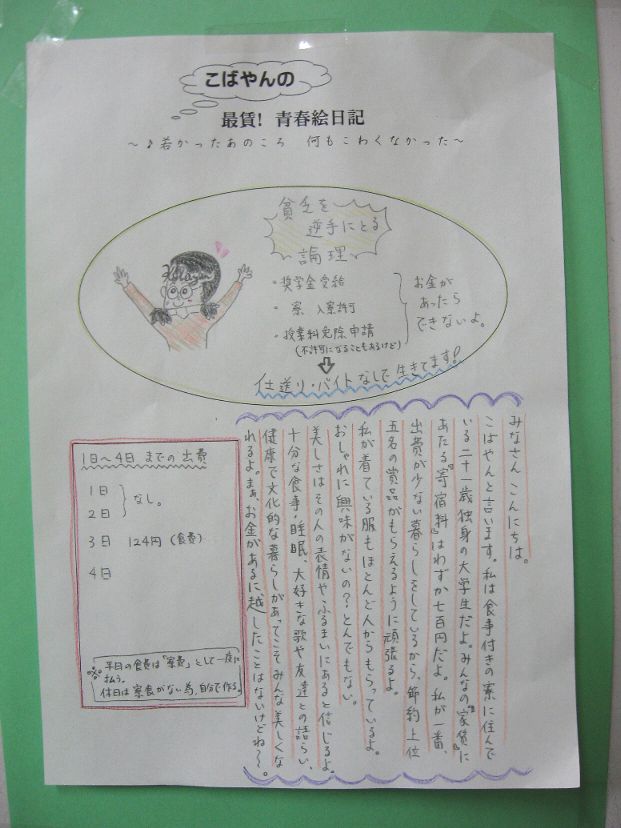 こばやんの
最賃! 青春絵日記
～♪若かったあのころ 何もこわくなかった～
貧乏を
逆手にとる
論理
・奨学金受給
・寮 入寮許可
・授業料免除申請
(不許可になることもあるけど)
お金が
あったら
できないよ。
仕送り・バイトなしで生きてます!
みなさんこんにちは。
こばやんと言います。私は食事付きの寮に住んで
いる二十一歳独身の大学生だよ。みんなの『家賃』に
あたる『寄宿料』はわずか七百円だよ。私が一番、
出費が少ない暮らしをしているから、節約上位
五名の賞品がもらえるように頑張るよ。
私が着ている服もほとんど人からもらっているよ。
おしゃれに興味がないの?とんでもない。
美しさはその人の表情やふるまいにあると信じるよ。
十分な食事・睡眠、大好きな歌や友達との語らい、
健康で文化的な暮らしがあってこそみんな美しくな
れるよ。まぁ、お金があるに、越したことはないけどね〜。
1日〜4日までの出費
1日
2日
なし。
3日 124円(食費)
4日
※平日の食費は「寮費」として一度に
払う。
休日は寮食がない為、自分で作る。